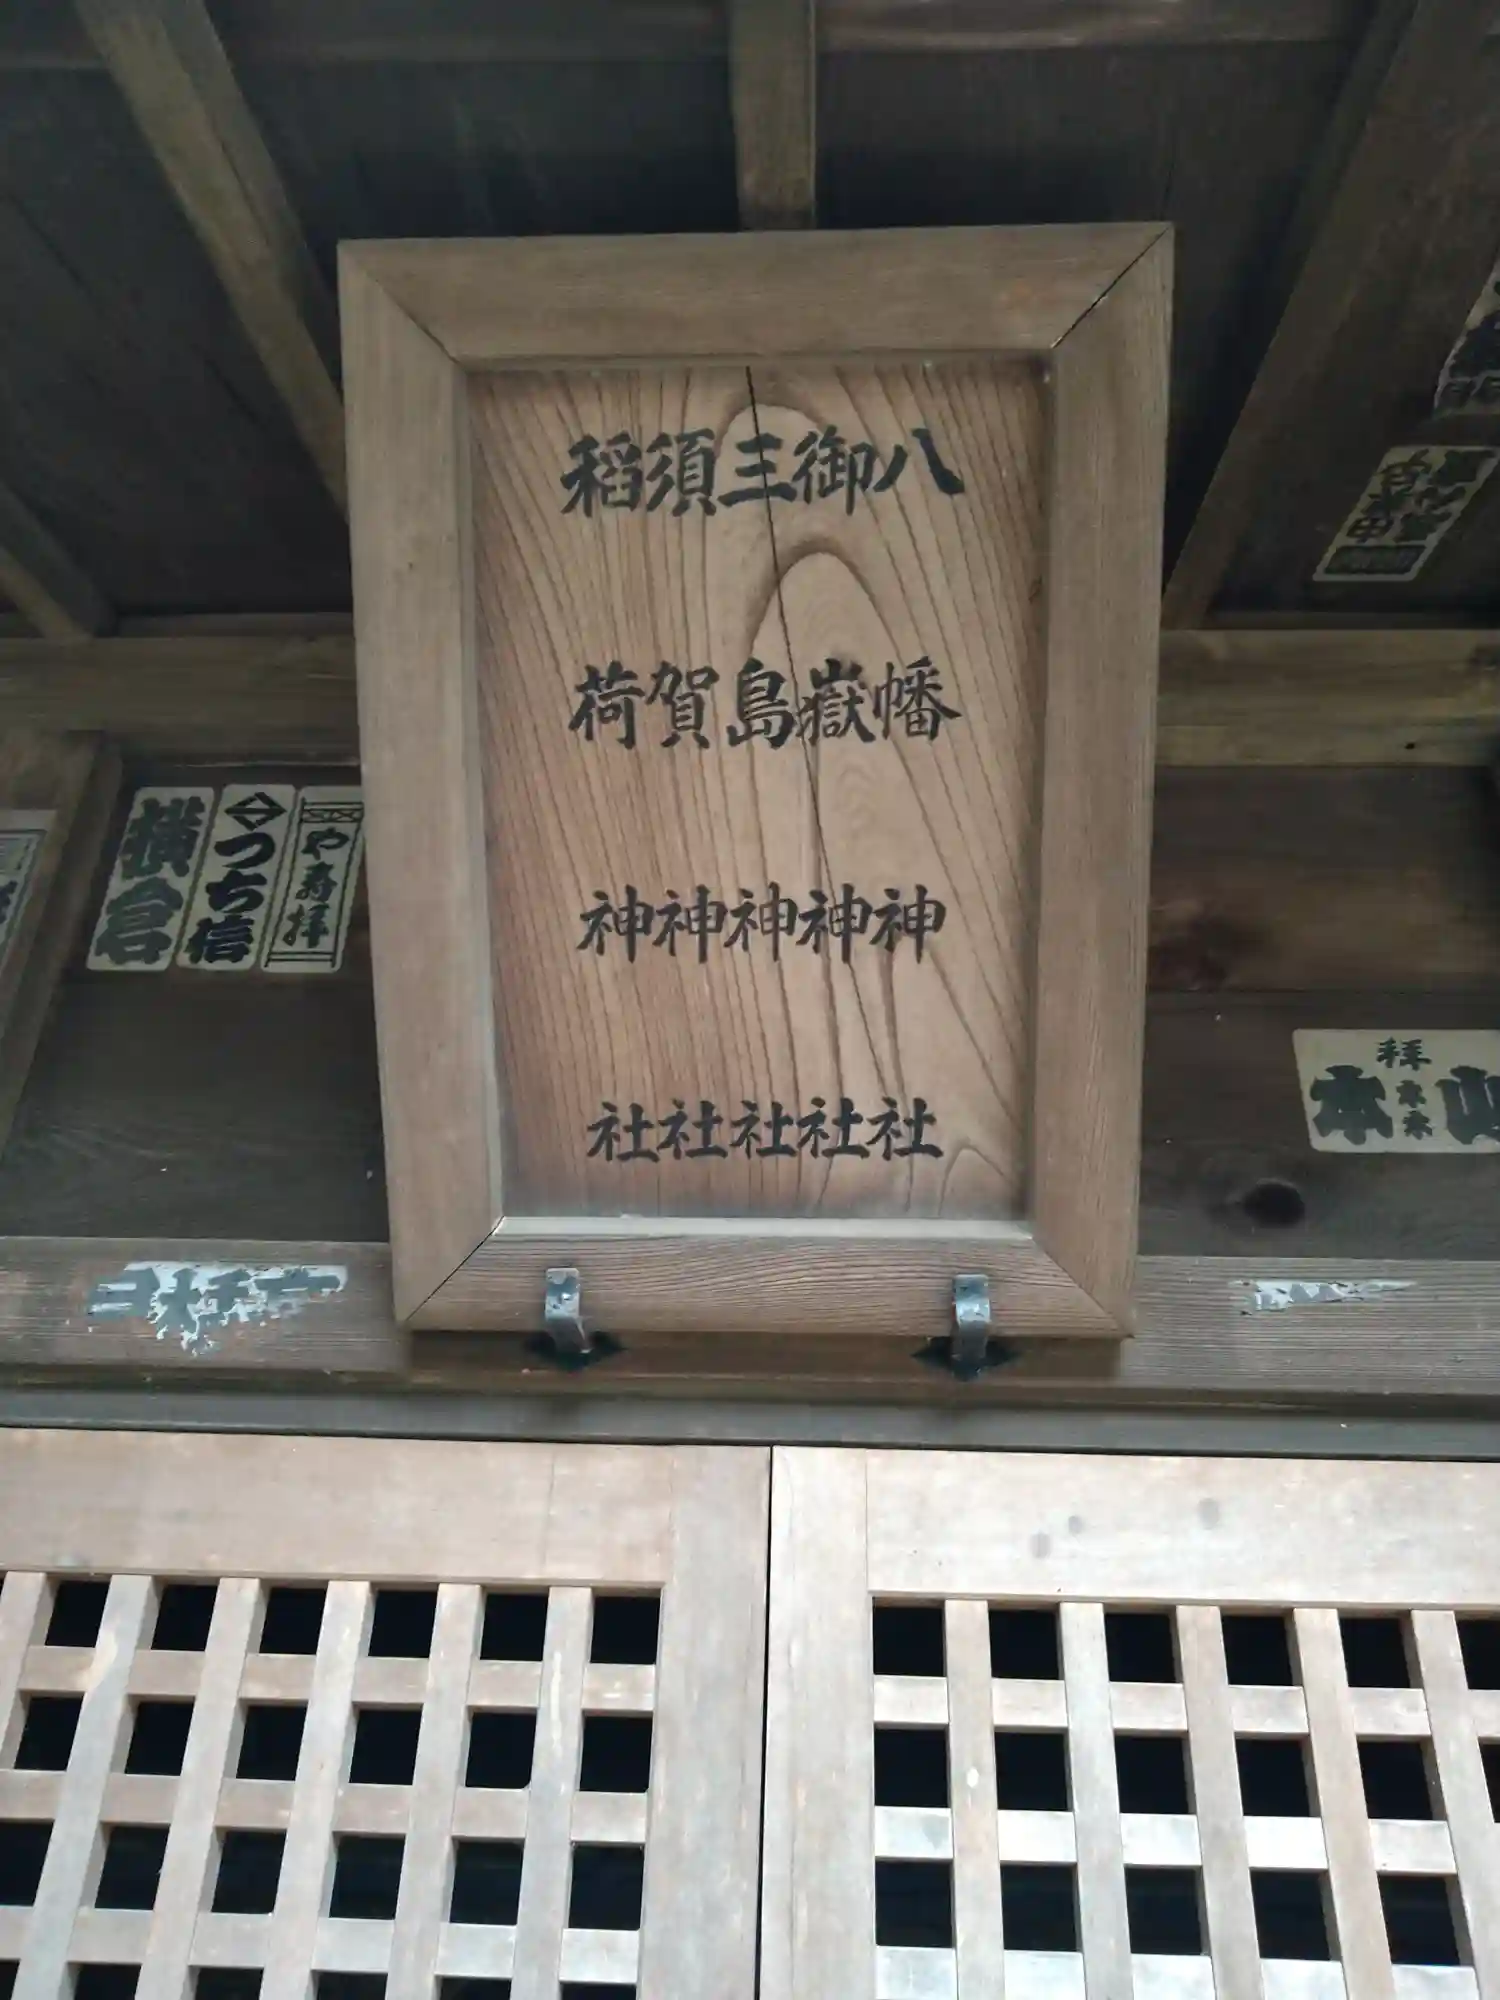 八幡神社
御嶽神社
三島神社
須賀神社
稲荷神社
や寿拝
つち信
横倉
拝
山本